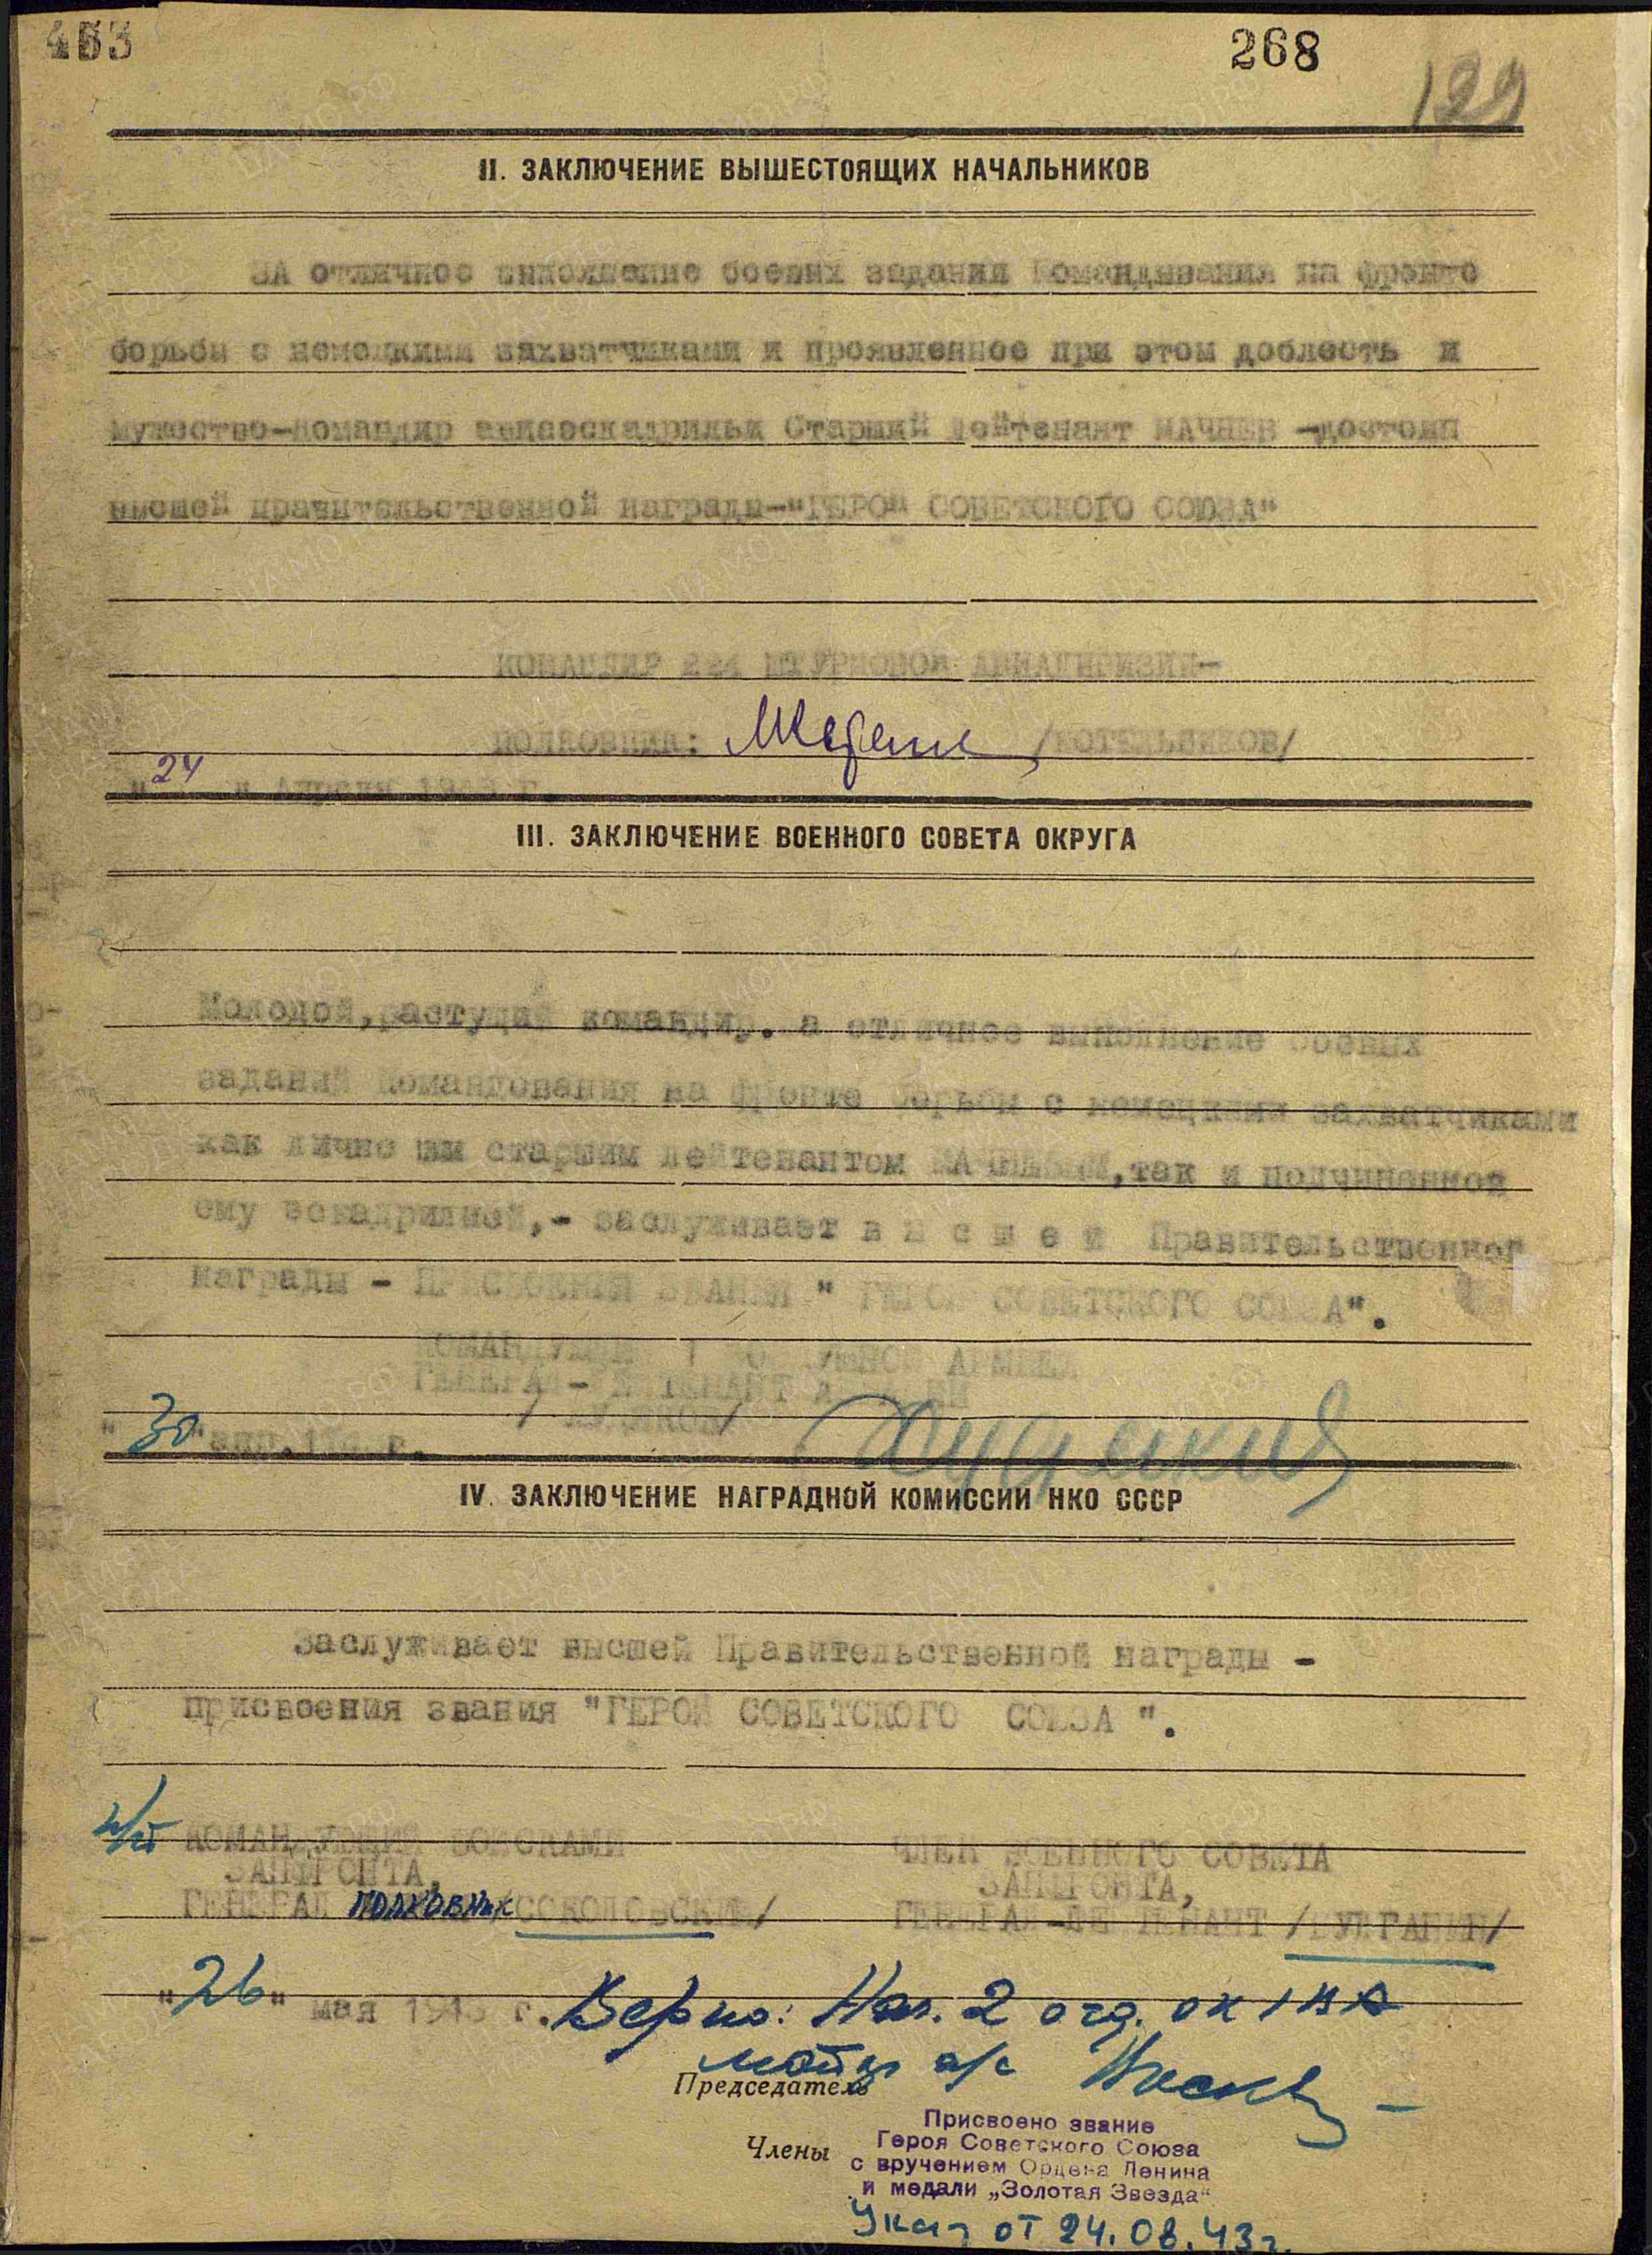 463
268
129
II. ЗАКЛЮЧЕНИЕ ВЫШЕСТОЯЩИХ НАЧАЛЬНИКОВ
ЗА отличное выполнение боевых заданий Командывания на фронте
борьбы с немецкими захватчиками и проявленное при этом доблесть и
мужество-Командир авиаэскадрильи Старший Лейтенант МАЧНЕВ -достоин
высшей правительственной награды-"ГЕРОЙ СОВЕТСКОГО СОЮЗА"
КОМАНДИР 224 ШТУРМОВОЙ АВИАДИВИЗИИ-
ПОЛКОВНИК: /КОТЕЛЬНИКОВ/
"24" Апреля 1943 г.
III. ЗАКЛЮЧЕНИЕ ВОЕННОГО СОВЕТА ОКРУГА
Молодой, растущий командир. За отличное выполнение боевых
заданий Командования на фронте борьбы с немецкими захватчиками
как лично им старшим лейтенантом МАЧНЕВЫМ, так и подчиненной
ему эскадрилией,- заслуживает в ы с ш е й Правительственной
награды - ПРИСВОЕНИЯ ЗВАНИЯ " ГЕРОЙ СОВЕТСКОГО СОЮЗА".
КОМАНДУЮЩИЙ 1 ВОЗДУШНОЙ АРМИЕЙ
ГЕНЕРАЛ-ЛЕЙТЕНАНТ АВИАЦИИ
/ ХУДЯКОВ/ Худяков
"30" апр. 1943 г.
IV. ЗАКЛЮЧЕНИЕ НАГРАДНОЙ КОМИССИИ НКО СССР
Заслуживает высшей Правительственной награды -
присвоения звания "ГЕРОЙ СОВЕТСКОГО СОЮЗА ".
п/п КОМАНДУЮЩИЙ ВОЙСКАМИ ЧЛЕН ВОЕННОГО СОВЕТА
ЗАПФРОНТА, ЗАПФРОНТА,
ГЕНЕРАЛ полковник /СОКОЛОВСКИЙ/ ГЕНЕРАЛ-ЛЕЙТЕНАНТ /БУЛГАНИН/
"26" мая 1943 г. Верно: Нач. 2 отд. ОК 1 ВА
майор а/с
Председатель
Присвоено звание
Члены Героя Советского Союза
с вручением Ордена Ленина
и медали „Золотая Звезда"
Указ от 24.08.43г.